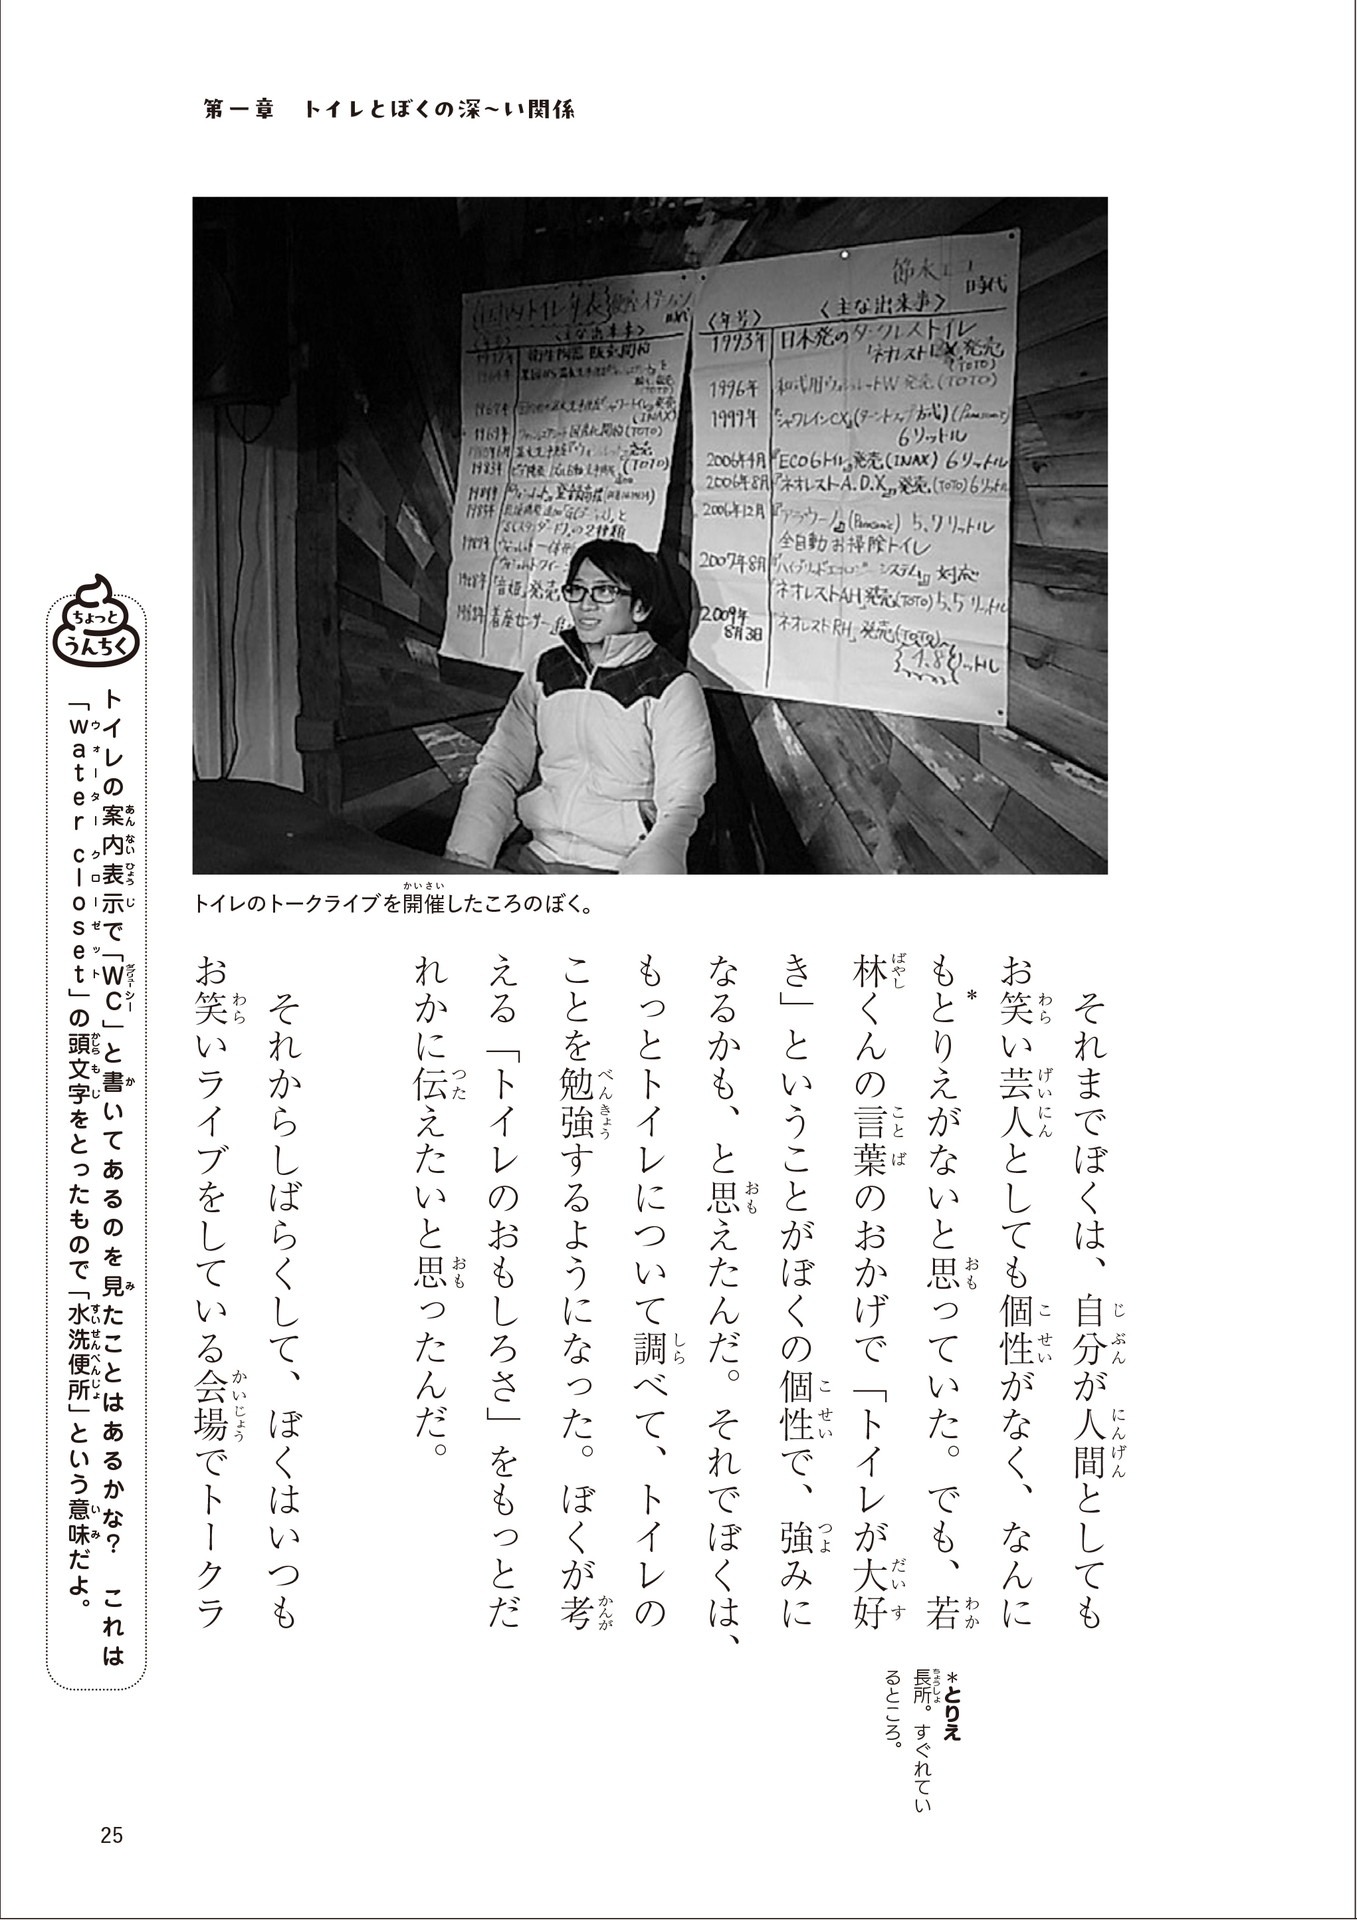 第一章　トイレとぼくの深〜い関係
節水エコ
時代
〈年号〉
〈主な出来事〉
1993年
日本発のタンクレストイレ
『ネオレストEX』発売
(TOTO)
1996年
和式用ウォシュレットW 発売(TOTO)
1999年
『シャワレインCX』(ターントラップ方式)(Panasonic)
6リットル
2006年4月
『ECO6トイレ』発売(INAX) 6リットル
2006年8月
『ネオレストA.D.X』発売(TOTO)6リットル
2006年12月
『アラウーノ』(Panasonic) 5.7リットル
全自動お掃除トイレ
2007年8月
『ハイブリッドエコロジーシステム』対応
『ネオレストAH』発売(TOTO)5.5リットル
2009年
8月3日
『ネオレストRH』発売(TOTO)
4.8リットル
トイレのトークライブを開催したころのぼく。
それまでぼくは、自分が人間としても
お笑い芸人としても個性がなく、なんに
もとりえがないと思っていた。でも、若
林くんの言葉のおかげで「トイレが大好
き」ということがぼくの個性で、強みに
なるかも、と思えたんだ。それでぼくは、
もっとトイレについて調べて、トイレの
ことを勉強するようになった。ぼくが考
える「トイレのおもしろさ」をもっとだ
れかに伝えたいと思ったんだ。
それからしばらくして、ぼくはいつも
お笑いライブをしている会場でトークラ
＊とりえ
長所。すぐれてい
るところ。
ちょっと
うんちく
トイレの案内表示で「WC」と書いてあるのを見たことはあるかな？　これは
「water closet」の頭文字をとったもので「水洗便所」という意味だよ。
25